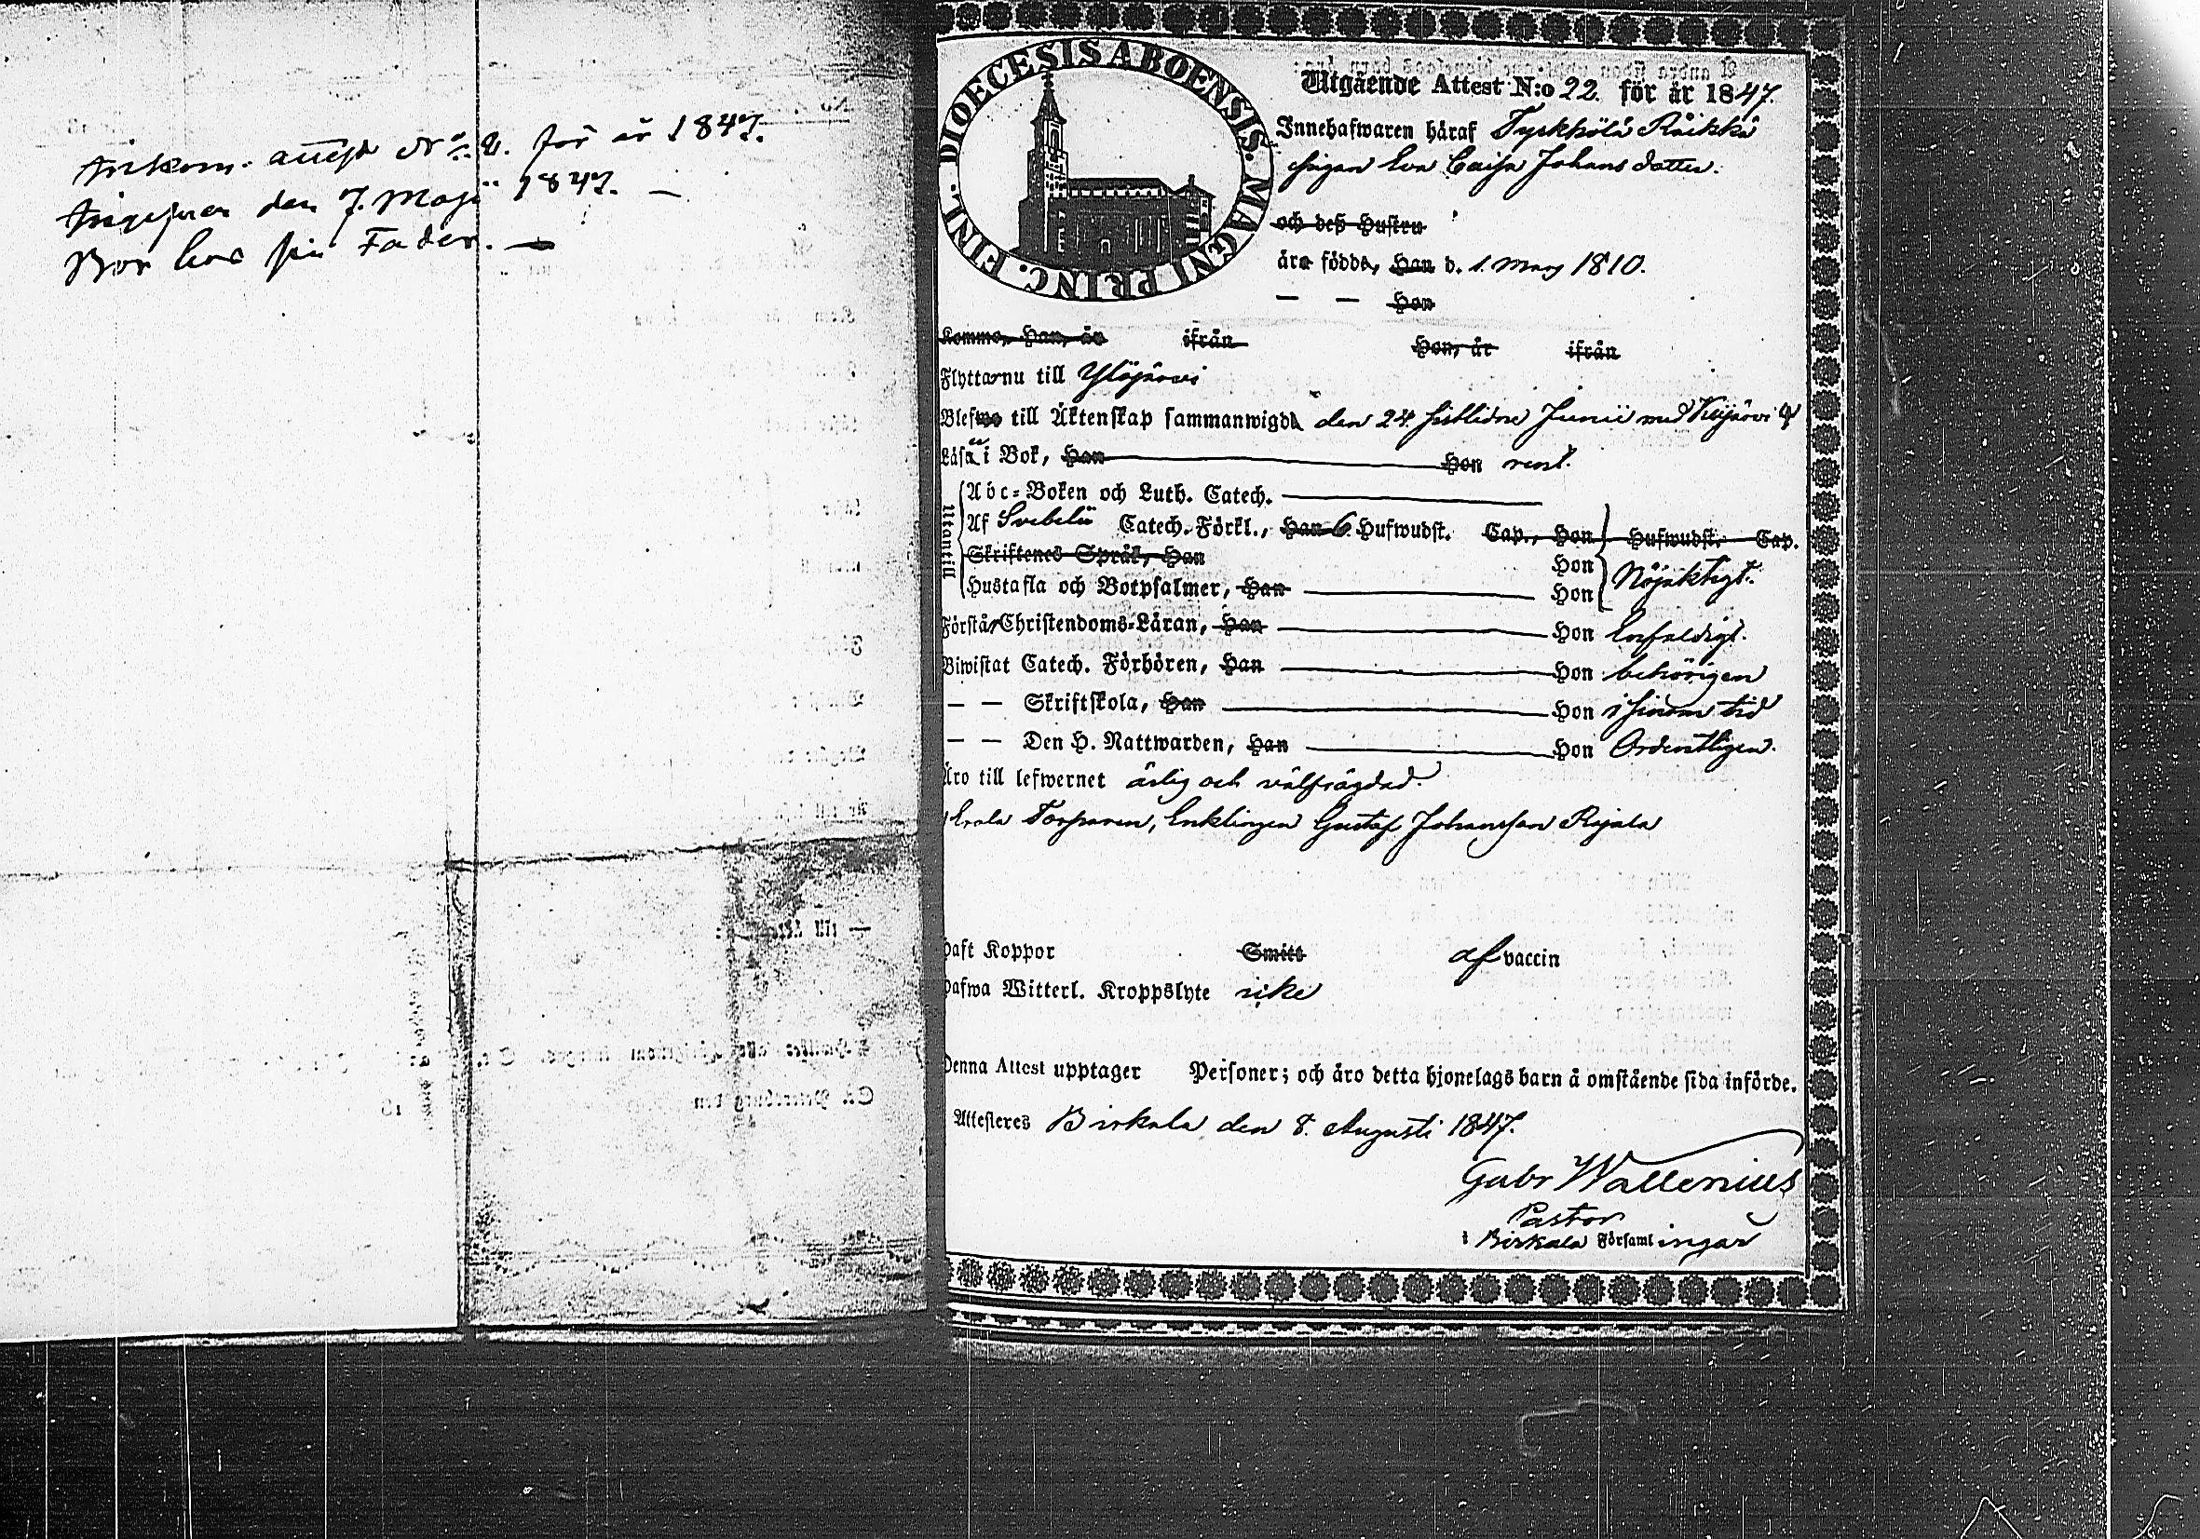 Inkom. attest N:o 2. för år 1847.
Ingifven den 7. Maji 1847. —
Bor hos sin Fader. —
DIOECESIS ABOENSIS. MAGNI PRINC. FINL.
Utgående Attest N:o 22. för år 1847.
Innehafwaren häraf Tyrkkölä Räikkä
pigan Eva Caisa Johansdotter.
och deß Hustru
äro födde, Han d. 1. Mars 1810.
— — Hon
Komme, Han, år ifrån Hon, år ifrån
Flytta nu till Ylöjärvi
Blefwo till Äktenskap sammanwigde den 24. sistlidne Junii med
Läsa i Bok, Han Hon rent.
Utantill
Abc-Boken och Luth. Catech.
Af Svebelii Catech. Förkl., Han 6 Hufwudst. Cap., Hon Hufwudst. Cap.
Skriftenes Språk, Han Hon
Hustafla och Botpsalmer, Han Hon Nöjaktigt.
Förstår Christendoms-Läran, Han Hon Enfaldigt.
Biwistat Catech. Förhören, Han Hon behörigen
— — Skriftskola, Han Hon i sinom tid
— — Den H. Nattwarden, Han Hon Ordentligen.
Äro till lefwernet ärlig och välfrägdad.
Torparen, Enklingen Gustaf Johansson Rijala
Haft Koppor Smitt af vaccin
Hafwa Witterl. Kroppslyte icke
Denna Attest upptager Personer; och äro detta hjonelags barn å omstående sida införde.
Attesteres Birkala den 8. Augusti 1847.
Gabr Wallenius
Pastor
i Birkala Församlingar